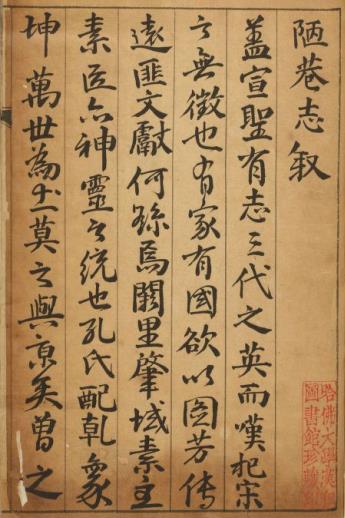 陋巷志叙
蓋宣聖有志三代之英而嘆杞宋
之無徵也有家有國欲以圖芳傳
遠匪文獻何繇焉闕里肇域素主
素臣亦神靈之统也孔氏配乾象
坤萬世為土莫之與京矣曾之
哈佛大學漢和
圖書館珍藏印